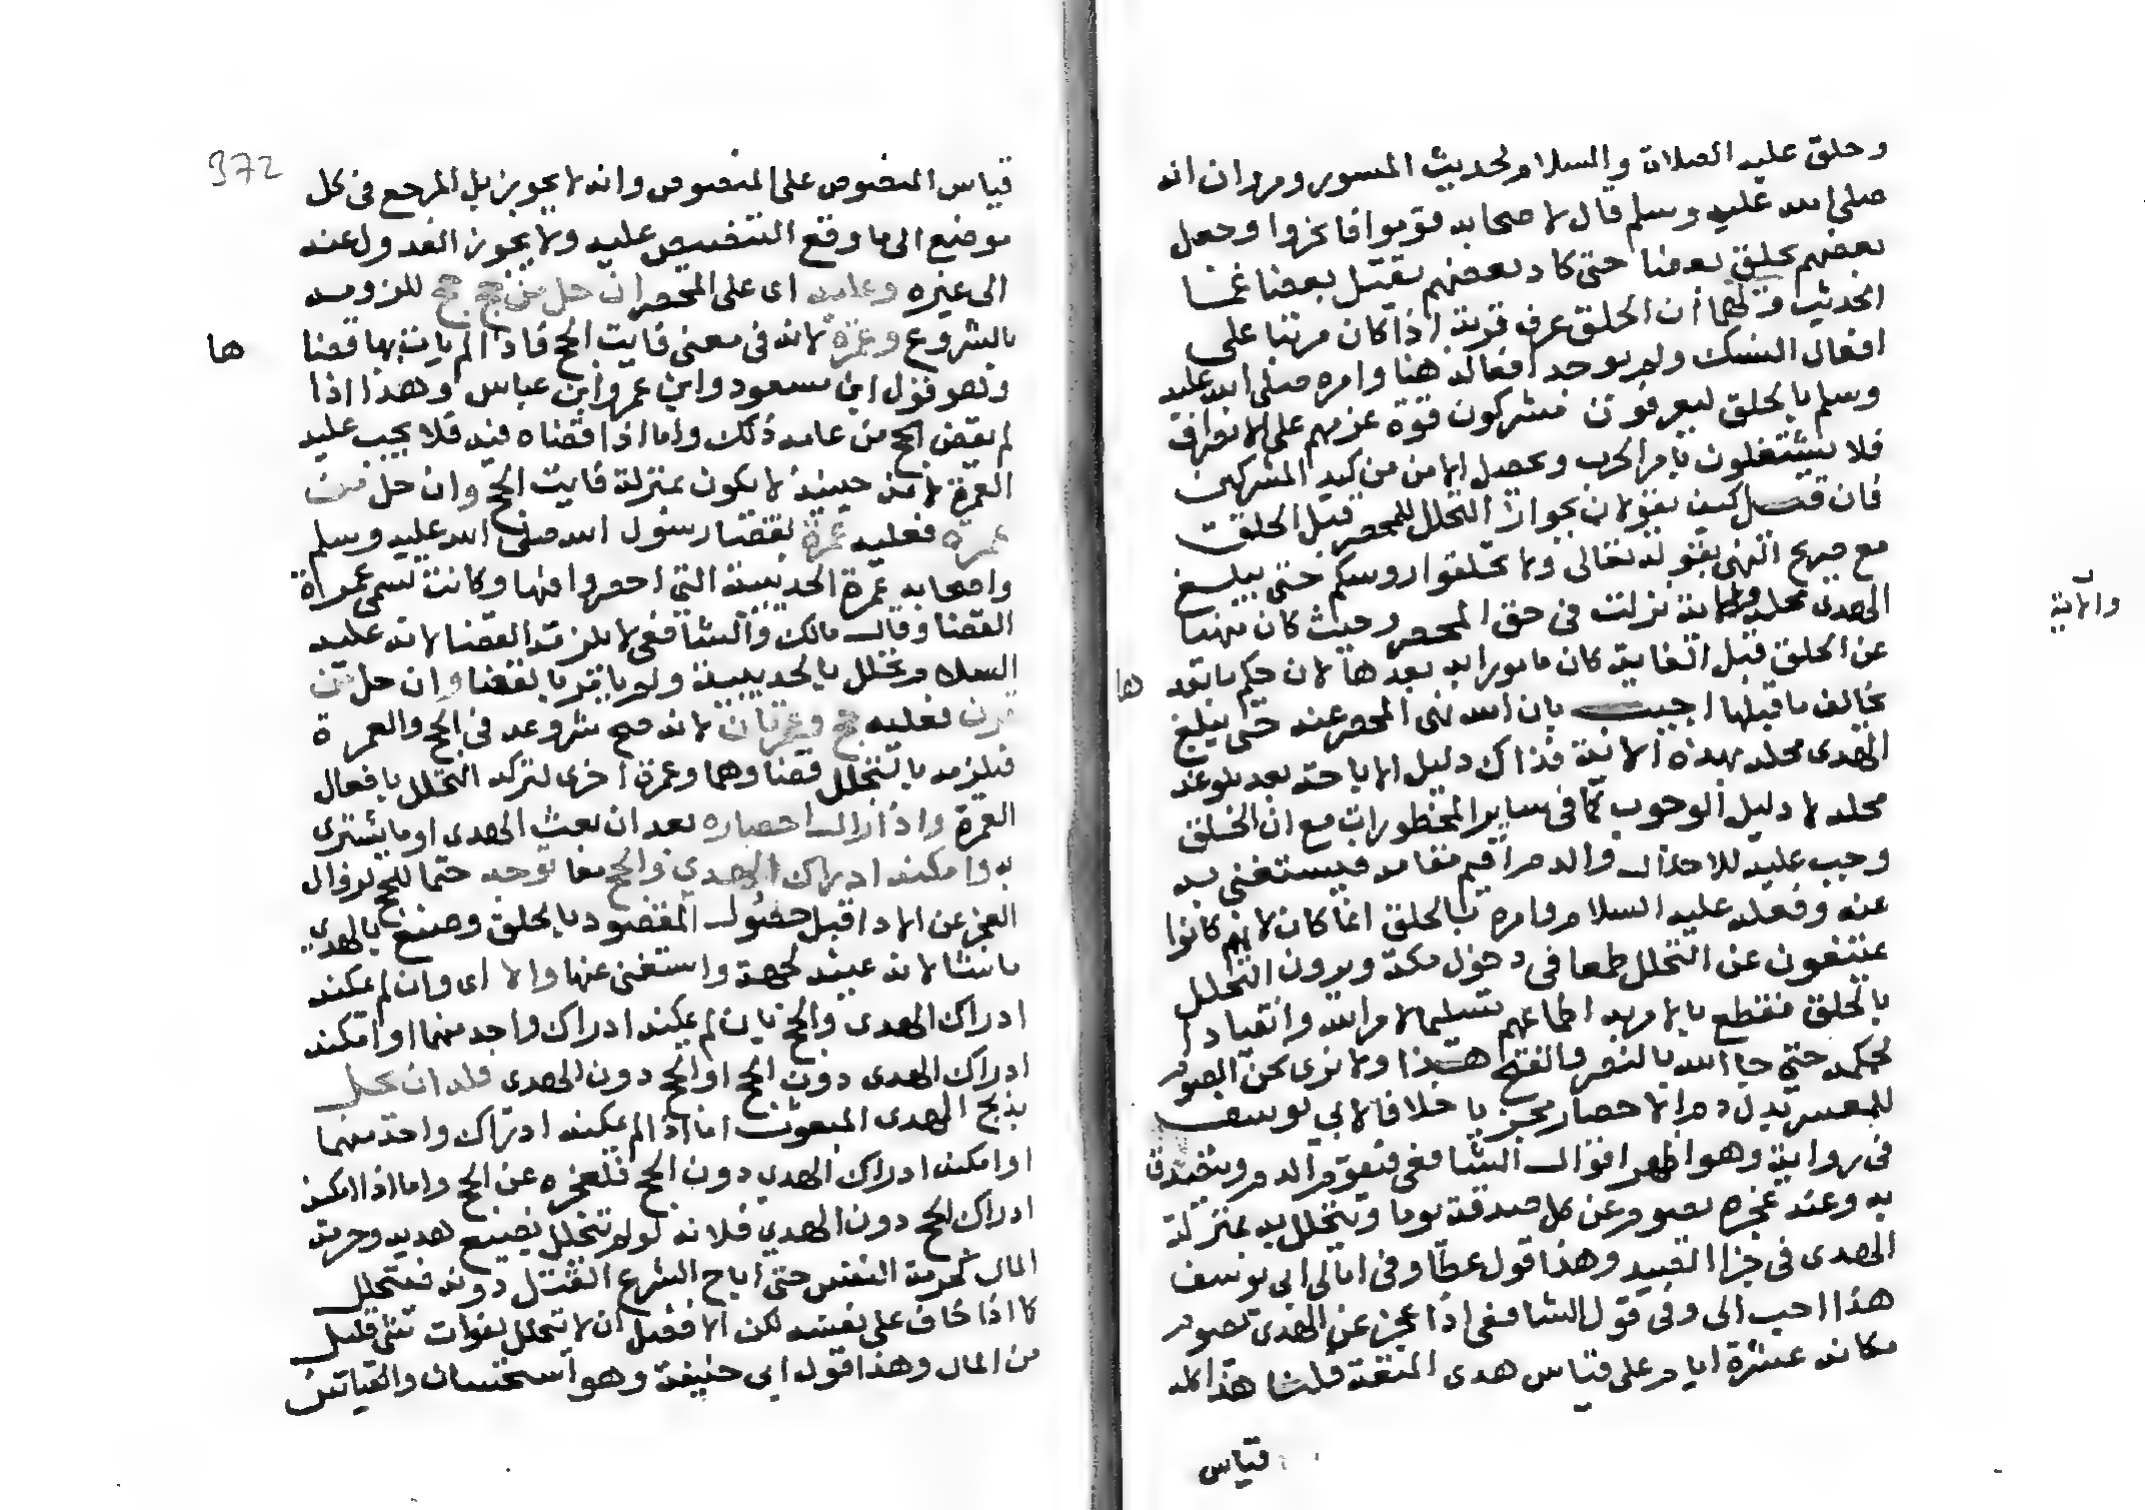 وحلق عليه الصلاة والسلام لحديث المسور ومروان انه
صلى الله عليه وسلم قال لاصحابه قوموا فانحروا وجعل
بعضهم يحلق بعضا حتى كاد بعضهم يقتل بعضا غما
الحديث ولهما أن الحلق عرف قربة اذا كان مرتبا على
افعال النسك ولم يوجد افعاله هنا وامره صلى الله عليه
وسلم بالحلق ليعرفون مشركون قوة عزمهم على الانصراف
فلا يشتغلون بامر الحرب ويحصل الامن من كيد المشركين
فان قيل كيف يقولان بجواز التحلل للمحصر قبل الحلق
مع صريح النهي بقوله تعالى ولا تحلقوا روسكم حتى يبلغ
الهدى محله والاية نزلت في حق المحصر وحيث كان منهيا
والاية
عن الحلق قبل الغاية كان مامورا به بعدها لان حكم ما بعد
ها
يخالف ما قبلها اجيب بان الله نهى المحصر عنه حتى يبلغ
الهدى محله بهذه الاية فذاك دليل الاباحة بعد بلوغه
محله لا دليل الوجوب كما في ساير المحظورات مع ان الحلق
وجب عليه للاحلال والدم اقيم مقامه فيستغنى به
عنه وفعله عليه السلام وامره بالحلق انما كان لانهم كانوا
يمتنعون عن التحلل طمعا في دخول مكة ويرون التحلل
بالحلق فقطع بالامر به اطماعهم تسليما لامر الله وانقيادا
لحكمه حتى جا الله بالنصر والفتح هذا ولا نرى نحن الصوم
للمعسر بدل دم الاحصار مجزيا خلافا لابي يوسف
في رواية وهو اظهر اقوال الشافعي فيقوم الدم ويتصدق
به وعند عجزه يصوم عن كل صدقة يوما ويتحلل به بمنزلة
الهدى في جزا الصيد وهذا قول عطا وفي امالي ابي يوسف
هذا احب الى وفي قول الشافعي اذا عجز عن الهدى يصوم
مكانه عشرة ايام على قياس هدى المتعة قلنا هذا كله
قياس
372
قياس المنصوص على المنصوص وانه لا يجوز بل المرجع في كل
موضع الى ما وقع التنصيص عليه ولا يجوز العدول عنه
الى غيره وعليه اى على المحصر ان حل من حج حج للزومه
بالشروع وعمرة لانه في معنى فايت الحج فاذا لم يات بها قضا
ها
وهو قول ابن مسعود وابن عمر وابن عباس وهذا اذا
لم يقض الحج من عامه ذلك واما اذا قضاه فيه فلا يجب عليه
العمرة لانه حينيذ لا يكون بمنزلة فايت الحج وان حل من
عمرة فعليه عمرة لقضا رسول الله صلى الله عليه وسلم
واصحابه عمرة الحديبية التي احصروا فيها وكانت تسمى عمرة
القضا وقال مالك والشافعي لا يلزمه القضا لانه عليه
السلام تحلل بالحديبية ولم يامر بالقضا وان حل من
قرن فعليه حج وعمرتان لانه صح شروعه في الحج والعمرة
فيلزمه بالتحلل قضاوهما وعمرة اخرى لتركه التحلل بافعال
العمرة واذا زال احصاره بعد ان بعث الهدى او ما يشترى
به وامكنه ادراك الهدى والحج معا توجه حتما للحج لزوال
العجز عن الادا قبل حصول المقصود بالحلق وصنع بالهدى
ما شا لانه عينه لجهة واستغنى عنها والا اى وان لم يمكنه
ادراك الهدى والحج بان لم يمكنه ادراك واحد منهما او امكنه
ادراك الهدى دون الحج او الحج دون الهدى فله ان يحل
بذبح الهدى المبعوث اما اذا لم يمكنه ادراك واحد منهما
او امكنه ادراك الهدي دون الحج فلعجزه عن الحج واما اذا امكنه
ادراك الحج دون الهدي فلانه لو لم يتحلل يضيع هديه وحرمة
المال كحرمة النفس حتى اباح الشرع القتل دونه فيتحلل
كما اذا خاف على نفسه لكن الافضل ان لا يتحلل لفوات شى قليل
من المال وهذا قول ابي حنيفة وهو استحسان والقياس